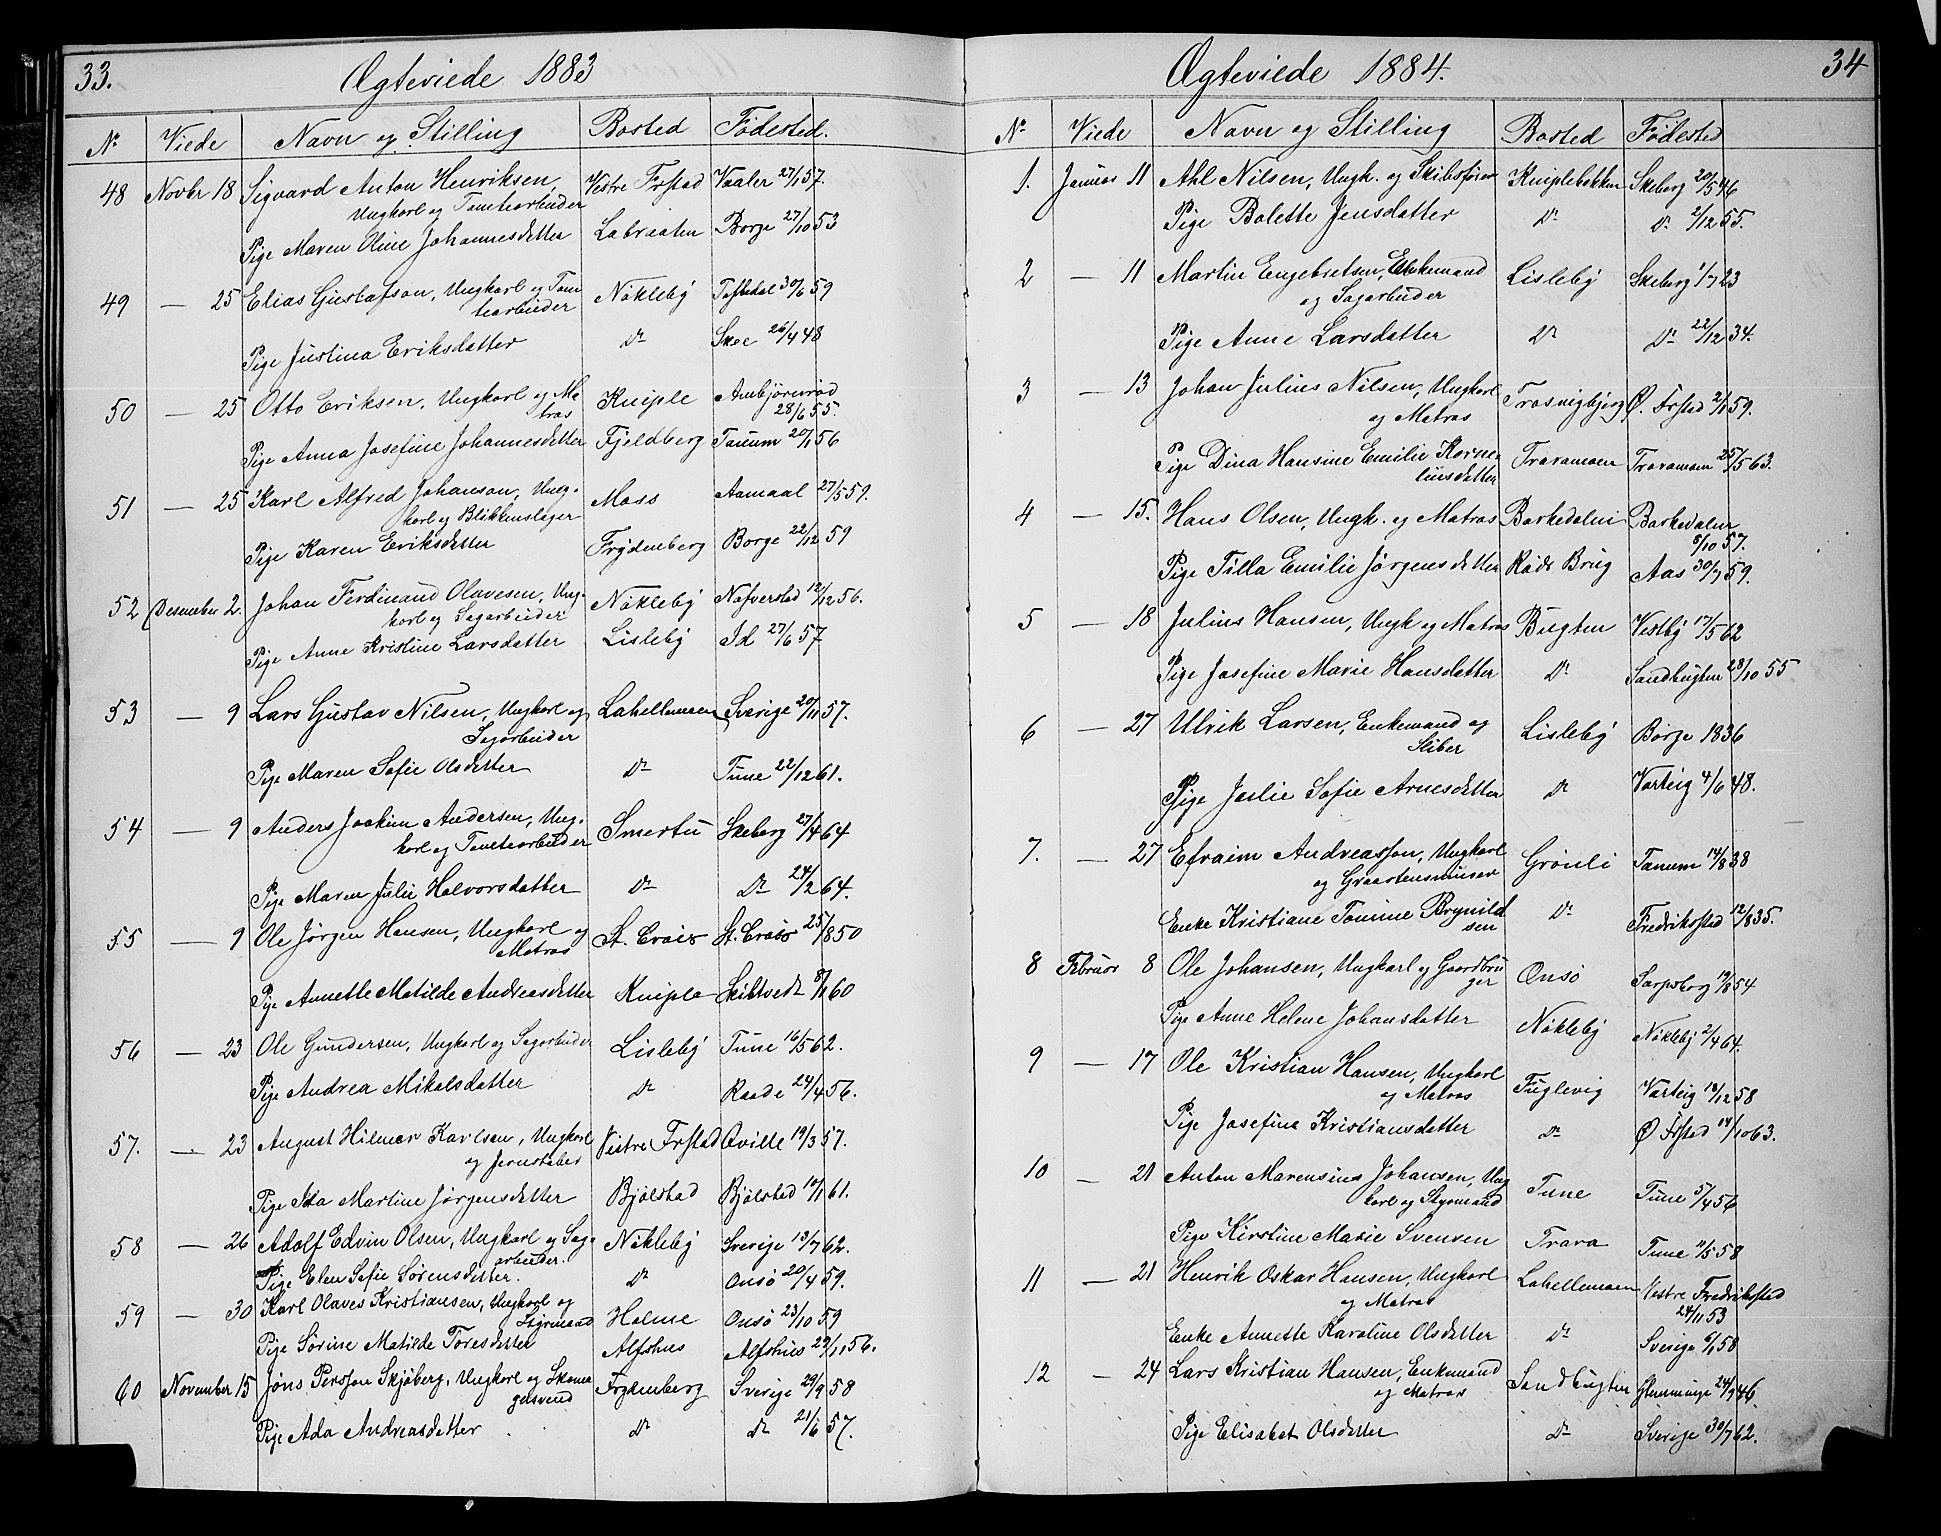 33. Ægteviede 1883
Nr Viede Navn og Stilling Bosted Fødested.
48 Novbr 18 Sigvard Anton Henriksen, Vestre Frstad Vaaler 27/1 57.
Ungkarl og Tomtearbeider
Pige Maren Oline Johannesdatter Labraaten Borge 27/10 53
49 — 25 Elias Gustafson, Ungkarl og Tom Nökleby 30/6 59
tearbeider
Pige Justina Eriksdatter Dr Skee 26/4 48
50 — 25 Otto Eriksen, Ungkarl og Ma Kniple
tros 28/6 55
Pige Anna Josefine Johannesdatter Fjeldberg Tanum 20/1 56
51 — 25 Karl Alfred Johanson, Ung- Moss Aamaal 27/5 59.
karl og Blikkenslager
Pige Karen Eriksdatter Frydenberg Borge 22/12 59
52 Desember 2. Johan Ferdinand Olavesen, Ung- Nökleby Nafverstad 12/12 56.
karl og Sagarbeider
Pige Anne Kristine Larsdatter Lisleby Id 27/6 57
53 — 9 Lars Gustav Nilsen, Ungkarl og Lahellemoen Sverige 20/11 57.
Sagarbeider
Pige Maren Sofie Olsdatter Dr Tune 22/12 61.
54 — 9 Anders Joakim Andersen, Ung- Smertu Skeberg 27/4 64
karl og Tomtearbeider
Pige Maren Julie Halvorsdatter Dr Dr 24/2 64.
55 — 9 Ole Jörgen Hansen, Ungkarl og St. Croix St. Croix 25/8 50
Matros
Pige Annette Matilde Andreasdatter Kniple Skibtvedt 8/1 60
56 — 23 Ole Gundersen, Ungkarl og Sagarbeider Lisleby Tune 16/5 62.
Pige Andrea Mikalsdatter Dr Raade 24/4 56.
57. — 23 August Hilmer Karlsen, Ungkarl Vestre Frstad Qville 19/3 57.
og Jernstøber
Pige Ida Martine Jørgensdatter Bjölstad Bjölstad 10/1 61.
58 — 26 Adolf Edvin Olsen, Ungkarl og Sag- Nökleby Sverige 13/7 62.
arbeider.
Pige Elen Sofie Sørensdatter. Dr Onsö 20/4 59.
59 — 30 Karl Olaves Kristiansen, Ungkarl og Holme Onsö 23/10 59
Styrmand
Pige Sørine Matilde Toresdatter Alfshus Alfshus 29/11 56.
60 November 15 Jøns Persson Skjöberg, Ungkarl og Skoma Frydenberg Sverige 29/9 58
gersvend
Pige Ada Andreasdatter Dr Dr 21/6 57.
Ægteviede 1884. 34
Nr Viede Navn og Stilling Bosted Fødested
1. Januar 11 Ahl Nilsen, Ungk. og Skibsfører Kniplebakken Skeberg 20/5 46
Pige Bolette Jensdatter Dr Dr 2/12 55.
2 — 11 Martin Engebretsen, Enkemand Lisleby Skeberg 1/7 23
og Sagarbeider
Pige Anne Larsdatter Dr Dr 22/12 34.
3 — 13 Johan Julius Nilsen, Ungkarl Trosvigbjerg Ø. Frstad 2/1 59.
og Matros
Pige Dina Hansine Emilie Korne- Traramoen Traramoen 25/5 63.
liusdatter
4 — 15. Hans Olsen, Ungk. og Matros Barkedalen Barkedalen
8/10 57.
Pige Tilla Emilie Jørgensdatter Røds Brug Aas 30/7 59.
5 — 18 Julius Hansen, Ungk og Matros Bugten Vestby 17/5 62
Pige Josefine Marie Hansdatter Dr Sandbugten 28/10 55
6 — 27 Ulrik Larsen, Enkemand og Lisleby Borge 1836
Sliber
Pige Julie Sofie Arnesdatter Dr Varteig 4/6 48.
7. — 27 Efraim Andreasson, Ungkarl Grönli Tanum 14/8 38
og Graastensmurer
Enke Kristiane Tomine Brynild Dr Fredriksstad 12/8 35.
sen
8 Februar 8 Ole Johansen, Ungkarl og Gaardbru Onsö Sarpsborg 19/8 54
ger
Pige Anne Helene Johansdatter Nökleby Nökleby 2/4 64.
9 — 17 Ole Kristian Hansen, Ungkarl Fuglevig Varteig 18/12 58
og Matros
Pige Josefine Kristiansdatter Dr Ø Frstad 14/10 63.
10 — 21 Anton Marensius Johansen, Ung Tune Tune 5/4 56
karl og Styrmand
Pige Kirstine Marie Svensen Trara Tune 11/5 58
11 — 21 Henrik Oskar Hansen, Ungkarl Lahellemoen Vestre Fredriksstad
og Matros 24/11 53
Enke Annette Karoline Olsdatter Dr Sverige 6/1 58
12 — 24 Lars Kristian Hansen, Enkemand Sandbugten 24/9 46.
og Matros
Pige Elisabet Olsdatter Dr Sverige 30/7 62.